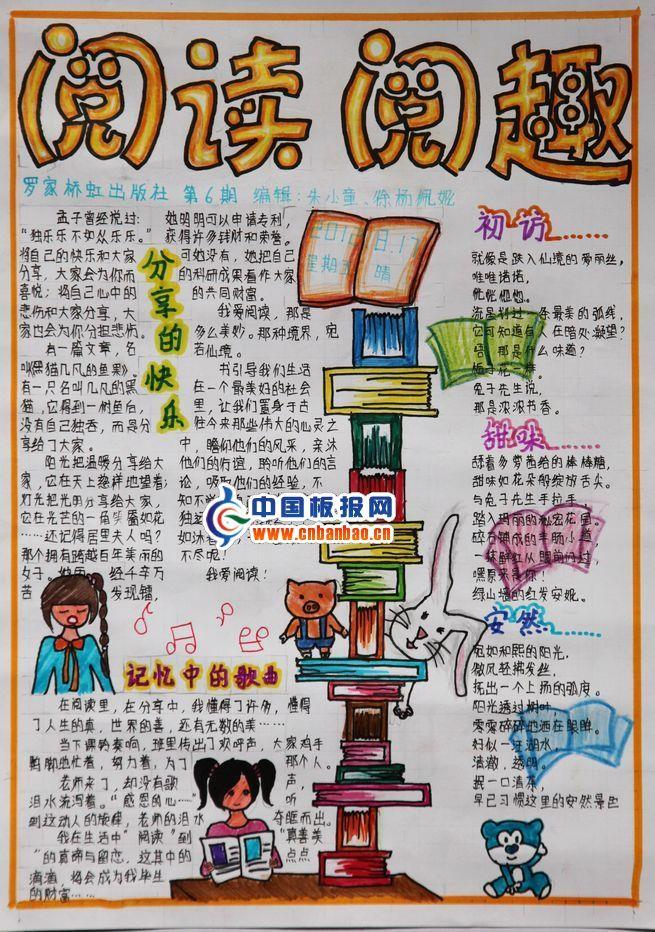 阅读阅趣
罗家桥虹出版社 第6期 编辑:朱小童、徐杨佩妮
孟子曾经说过:
“独乐乐不如众乐乐。”
将自己的快乐和大家
分享,大家会为你而
喜悦;将自己心中的
悲伤和大家分享,大
家也会为你分担悲伤。
有一篇文章,名
叫《黑猫几凡的鱼果》。
有一只名叫几凡的黑
猫,它得到一树鱼后,
没有自己独吞,而是分
享给了大家。
阳光把温暖分享给大
家,它在天上慈祥地望着;
灯光把光明分享给大家,
它在光芒的一角笑靥如花
……还记得居里夫人吗?
那个拥有跨越百年美丽的
女子。她用 经千辛万
苦 发现镭,
分享的快乐
她明明可以申请专利,
获得许多钱财和荣誉。
可她没有,她把自己
的科研成果看作大家
的共同财富。
我爱阅读,那是
多么美妙。那种境界,宛
若仙境。
书引导我们生活
在一个最美好的社会
里,让我们置身于古
往今来那些伟大的心灵之
中,瞻仰他们的风采,亲沐
他们的行谊,聆听他们的言
论,吸取他们的经验,不
知不
独
如沐
不尽呢!
我爱阅读!
2012.8.17
星期五 晴
初访……
就像是跌入仙境的爱丽丝,
唯唯诺诺,
恍恍惚惚。
流星划过一条最美的弧线,
它可知道有人在暗处凝望?
唔,那是什么味道?
栀子花一样。
兔子先生说,
那是浓浓书香。
甜味……
舔着多萝西给的棒棒糖,
甜味如花朵般绽放舌尖。
与兔子先生手拉手,
踏入玛丽的秘密花园。
碎石铺成的羊肠小道
一抹鲜红从眼前闪过,
嘿原来是你!
绿山墙的红发安妮。
安然……
宛如和熙的阳光,
微风轻拂发丝,
抚出一个上扬的弧度。
阳光透过树叶,
零零碎碎地洒在眼眸。
好似一汪湖水,
清澈,透明。
抿一口清茶,
早已习惯这里的安然
中国板报网
www.cnbanbao.cn
记忆中的歌曲
在阅读里,在分享中,我懂得了许多,懂得
了人生的真,世界的善,还有无数的美……
当下课铃奏响,班里传出了欢呼声,大家鸡手
鸭脚地忙着,努力着,为了 那个人。
老师来了,却没有歌 声,
泪水流淌着。“感恩的心……” 听
到这动人的旋律,老师的泪水 夺眶而出。
我在生活中“阅读”到 “真善美
”的真谛与留恋,这其中的 点点
滴滴,将会成为我毕生
的财富……